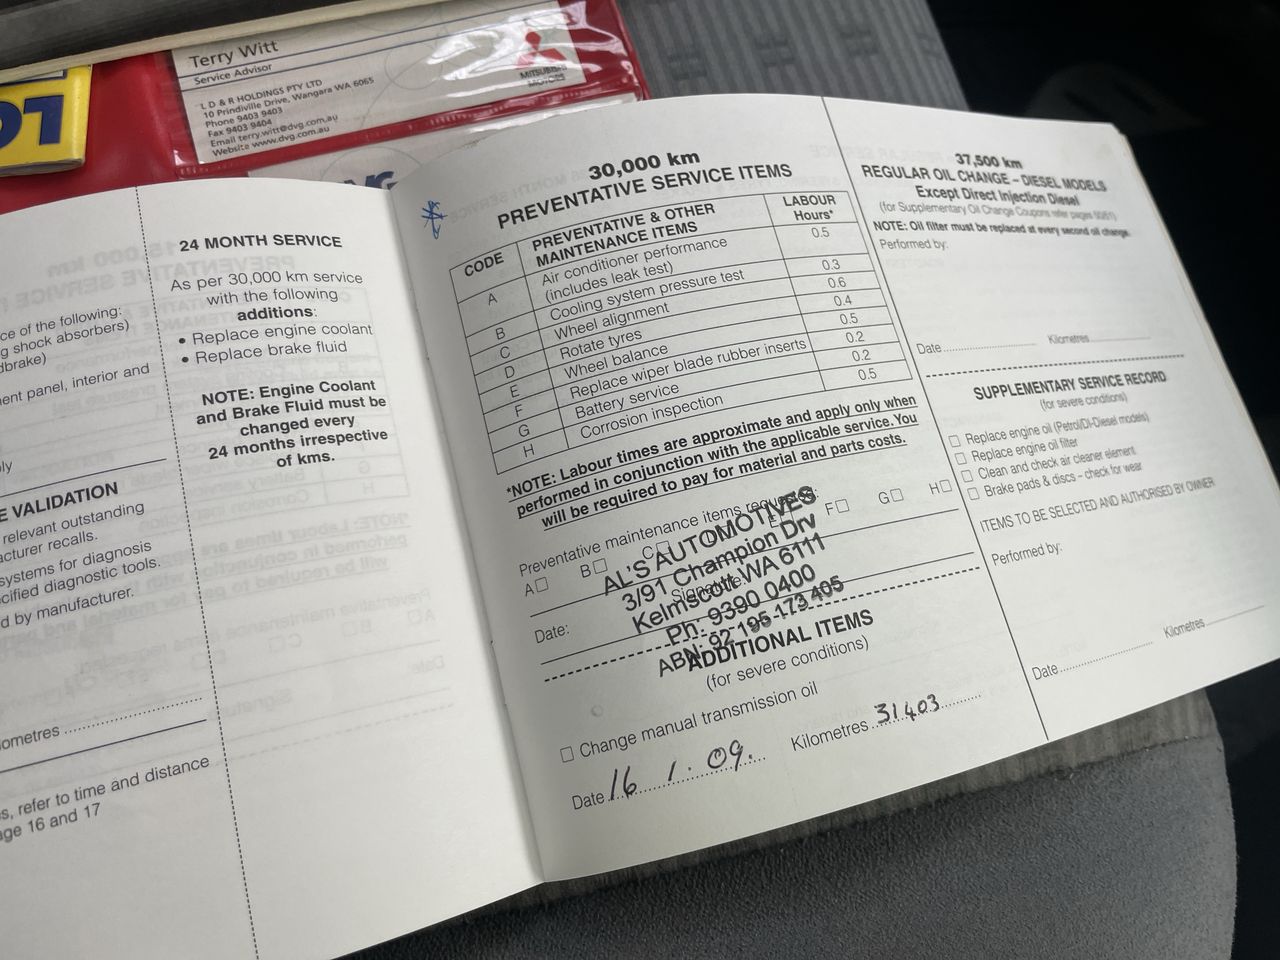 Terry Witt
Service Advisor
L D & R HOLDINGS PTY LTD
10 Prindiville Drive, Wangara WA 6065
Phone 9403 9403
Fax 9403 9404
Email terry.witt@dvg.com.au
Website www.dvg.com.au
MITSUBISHI
MOTORS
ce of the following:
g shock absorbers)
dbrake)
ent panel, interior and
ply
E VALIDATION
relevant outstanding
acturer recalls.
systems for diagnosis
cified diagnostic tools.
d by manufacturer.
lometres
s, refer to time and distance
age 16 and 17
24 MONTH SERVICE
As per 30,000 km service
with the following
additions:
• Replace engine coolant
• Replace brake fluid
NOTE: Engine Coolant
and Brake Fluid must be
changed every
24 months irrespective
of kms.
30,000 km
PREVENTATIVE SERVICE ITEMS
CODE PREVENTATIVE & OTHER MAINTENANCE ITEMS LABOUR Hours*
A Air conditioner performance (includes leak test) 0.5
B Cooling system pressure test 0.3
C Wheel alignment 0.6
D Rotate tyres 0.4
E Wheel balance 0.5
F Replace wiper blade rubber inserts 0.2
G Battery service 0.2
H Corrosion inspection 0.5
*NOTE: Labour times are approximate and apply only when
performed in conjunction with the applicable service. You
will be required to pay for material and parts costs.
Preventative maintenance items requested:
A B C F G H
Date: Signature:
AL'S AUTOMOTIVES
3/91 Champion Drv
Kelmscott WA 6111
Ph: 9390 0400
ABN: 92 195 173 405
ADDITIONAL ITEMS
(for severe conditions)
Change manual transmission oil
Date 16.1.09. Kilometres 31403
37,500 km
REGULAR OIL CHANGE – DIESEL MODELS
Except Direct Injection Diesel
(for Supplementary Oil Change Coupons refer pages
NOTE: Oil filter must be replaced at every second oil change.
Performed by:
Date Kilometres
SUPPLEMENTARY SERVICE RECORD
(for severe conditions)
Replace engine oil (Petrol/DI-Diesel models)
Replace engine oil filter
Clean and check air cleaner element
Brake pads & discs – check for wear
ITEMS TO BE SELECTED AND AUTHORISED BY OWNER
Performed by:
Date Kilometres